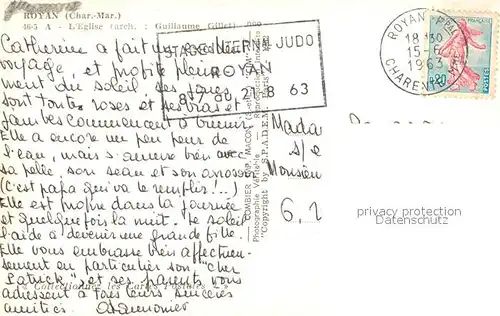 ROYAN (Char.-Mar.)
46-5 A - L'Eglise (arch. : Guillaume Gillet)
Catherine a fait un excellent
voyage, et profite pleine-
ment du soleil. Ses joues
sont toutes roses et ses bras et
jambes commencent à brunir.
Elle a encore un peu peur de
l'eau, mais s'amuse bien avec
sa pelle, son seau et son arrosoir
(c'est papa qui va le remplir!...)
Elle est propre dans la journée
et quelquefois la nuit. Le soleil
l'aide à devenir une grande fille.
Elle vous embrasse bien affectueu-
sement en particulier son "cher
Patrick", et ses parents vous
adressent à tous leurs sincères
amitiés.
"Collectionnez les Cartes Postales"
STAGE INTERN. JUDO
ROYAN
AU 21-8 63
COMBIER IMP. MACON
Photographie Véritable - Reproduction
"Copyright by S.P.A.D.E.M."
ROYAN PPAL
18H30
15-6
1963
CHARENTE MME
0,20
Mada
s/c
Monsieu
6, 2
privacy protection
Datenschutz